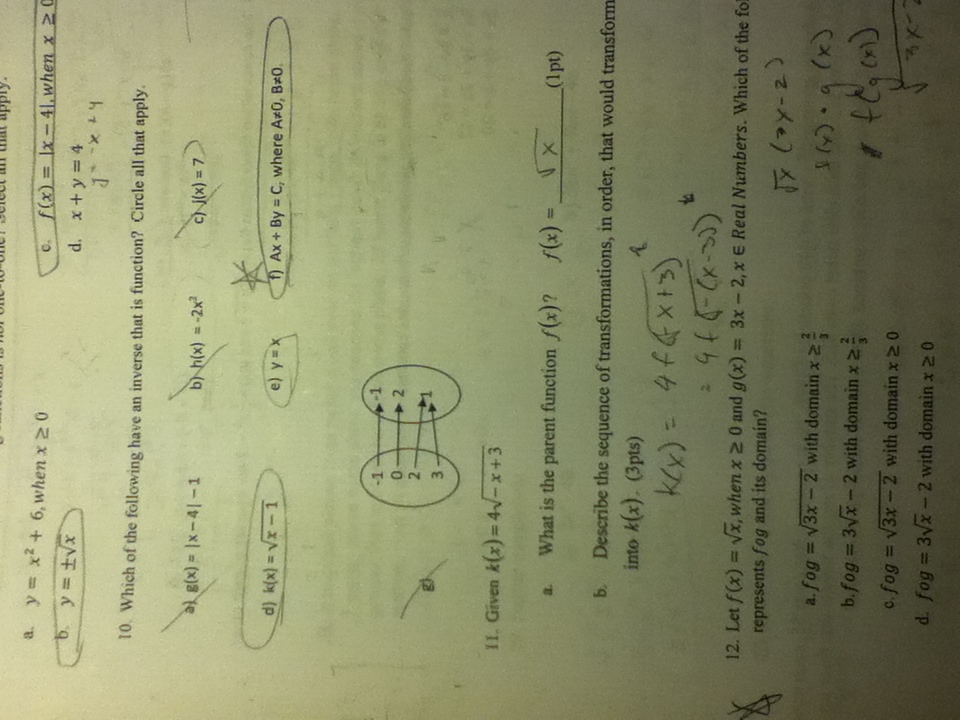 is not one-to-one? Select all that apply.
a. y = x² + 6, when x ≥ 0
c. f(x) = |x − 4|, when x ≥ 0
b. y = ±√x
d. x + y = 4
y = -x + 4
10. Which of the following have an inverse that is function? Circle all that apply.
a) g(x) = |x − 4| − 1 b) h(x) = -2x² c) j(x) = 7
d) k(x) = √x − 1 e) y = x f) Ax + By = C, where A≠0, B≠0.
-1 -1
0 2
2
g) 1
3
11. Given k(x) = 4√−x+3
a. What is the parent function f(x)? f(x) = √x (1pt)
b. Describe the sequence of transformations, in order, that would transform
into k(x). (3pts)
k(x) = 4 f(√-x+3)
= 4 f(√-(x-3))
12. Let f(x) = √x, when x ≥ 0 and g(x) = 3x − 2, x ∈ Real Numbers. Which of the fo
represents fog and its domain?
√x (3x-2)
a. fog = √3x − 2 with domain x ≥ 2/3
f(x) • g(x)
b. fog = 3√x − 2 with domain x ≥ 2/3
f(g(x))
c. fog = √3x − 2 with domain x ≥ 0
√3x-2
d. fog = 3√x − 2 with domain x ≥ 0